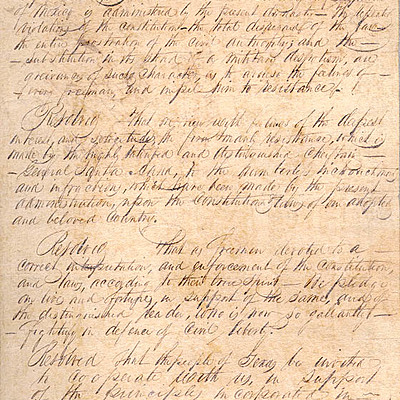 of Mexico as administered by the present
violations of the constitution — the total disregard of the laws
the entire prostration of the civil authority, and the
substitution in its stead of a military despotism, are
grievances of such a character, as to arouse the feelings of
every freeman, and impel him to resistance —
Resolved That we view with feelings of the deepest
interest and solicitude, the firm & manly resistance, which is
made by the highly talented and distinguished Chieftain —
General Santa Anna, to the numberless encroachments
and infractions, which have been made by the present
administration, upon the Constitution & laws of our adopted
and beloved Country.
Resolved That as freemen devoted to a
correct interpretation, and enforcement of the Constitution,
and laws, according to their true Spirit — We pledge
our lives and fortunes, in support of the same, and of
the distinguished leader, who is now so gallantly —
fighting in defence of Civil liberty.
Resolved That the people of Texas be invited
to cooperate with us, in support
of the principles incorporated in